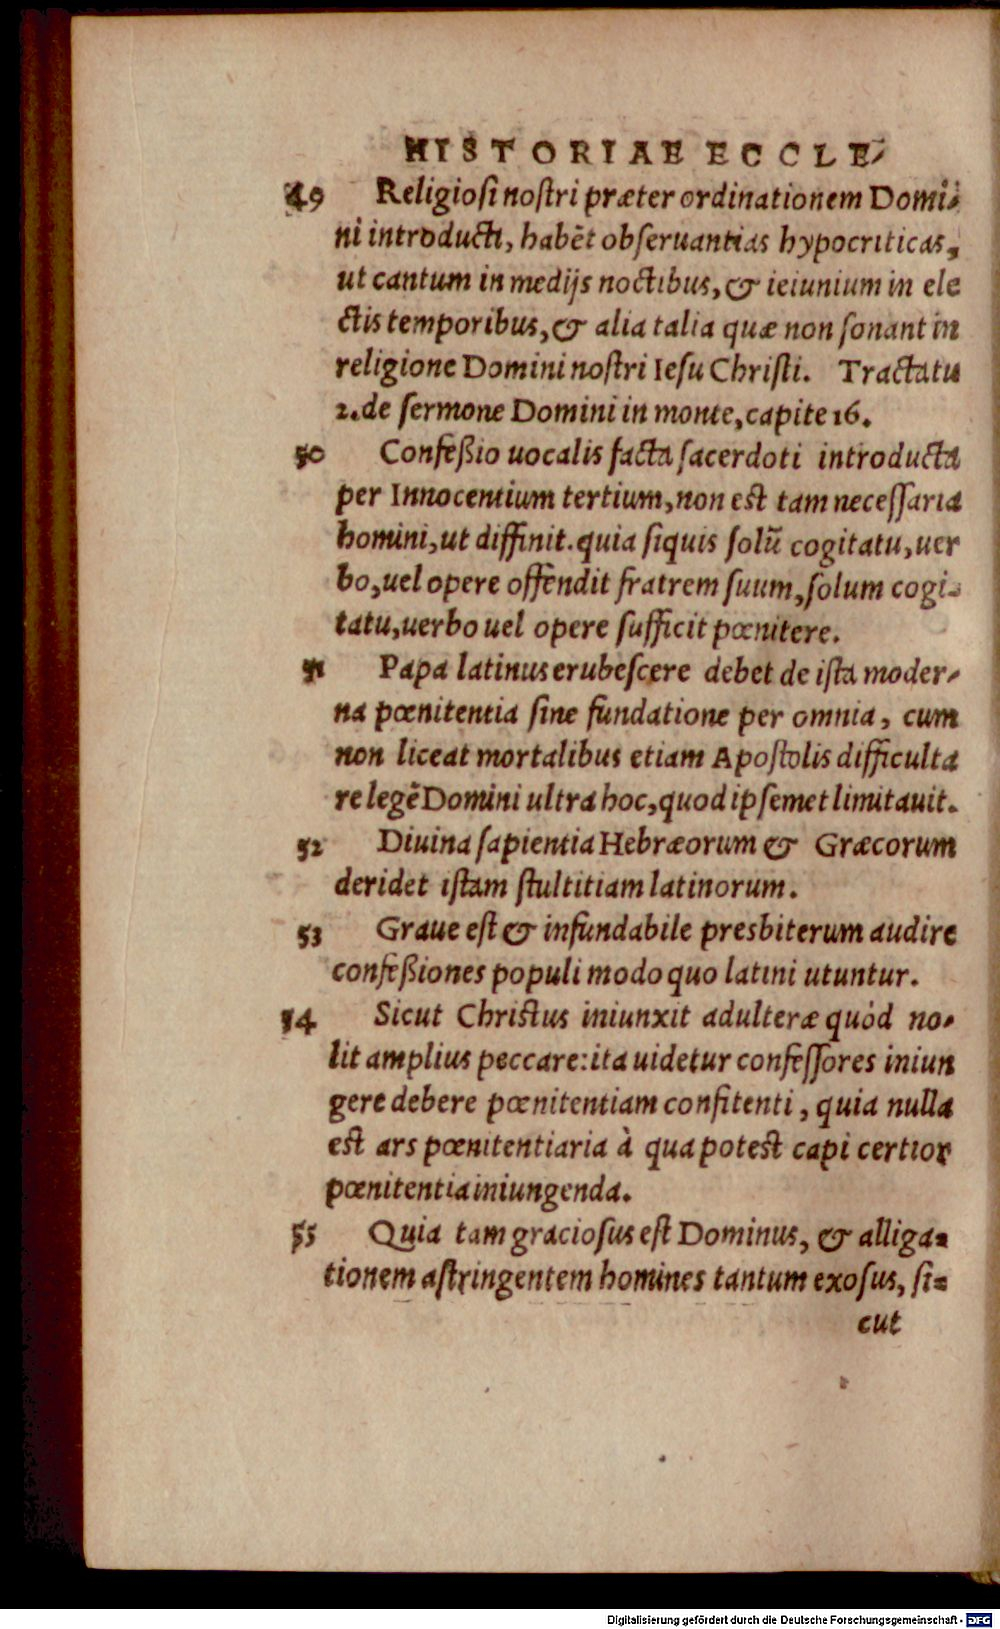 HISTORIAE ECCLE-
49 Religiosi nostri præter ordinationem Domi-
ni introducti, habēt obseruantias hypocriticas,
ut cantum in medijs noctibus, & ieiunium in ele
ctis temporibus, & alia talia quæ non sonant in
religione Domini nostri Iesu Christi. Tractatu
2. de sermone Domini in monte, capite 16.
50 Confeßio uocalis facta sacerdoti introducta
per Innocentium tertium, non est tam necessaria
homini, ut diffinit. quia siquis solū cogitatu, uer
bo, uel opere offendit fratrem suum, solum cogi-
tatu, uerbo uel opere sufficit pœnitere.
51 Papa latinus erubescere debet de ista moder-
na pœnitentia sine fundatione per omnia, cum
non liceat mortalibus etiam Apostolis difficulta
re legē Domini ultra hoc, quod ipsemet limitauit.
52 Diuina sapientia Hebræorum & Græcorum
deridet istam stultitiam latinorum.
53 Graue est & infundabile presbiterum audire
confeßiones populi modo quo latini utuntur.
54 Sicut Christus iniunxit adulteræ quòd no-
lit amplius peccare: ita uidetur confessores iniun
gere debere pœnitentiam confitenti, quia nulla
est ars pœnitentiaria à qua potest capi certior
pœnitentia iniungenda.
55 Quia tam graciosus est Dominus, & alliga-
tionem astringentem homines tantum exosus, si-
cut
Digitalisierung gefördert durch die Deutsche Forschungsgemeinschaft - DFG